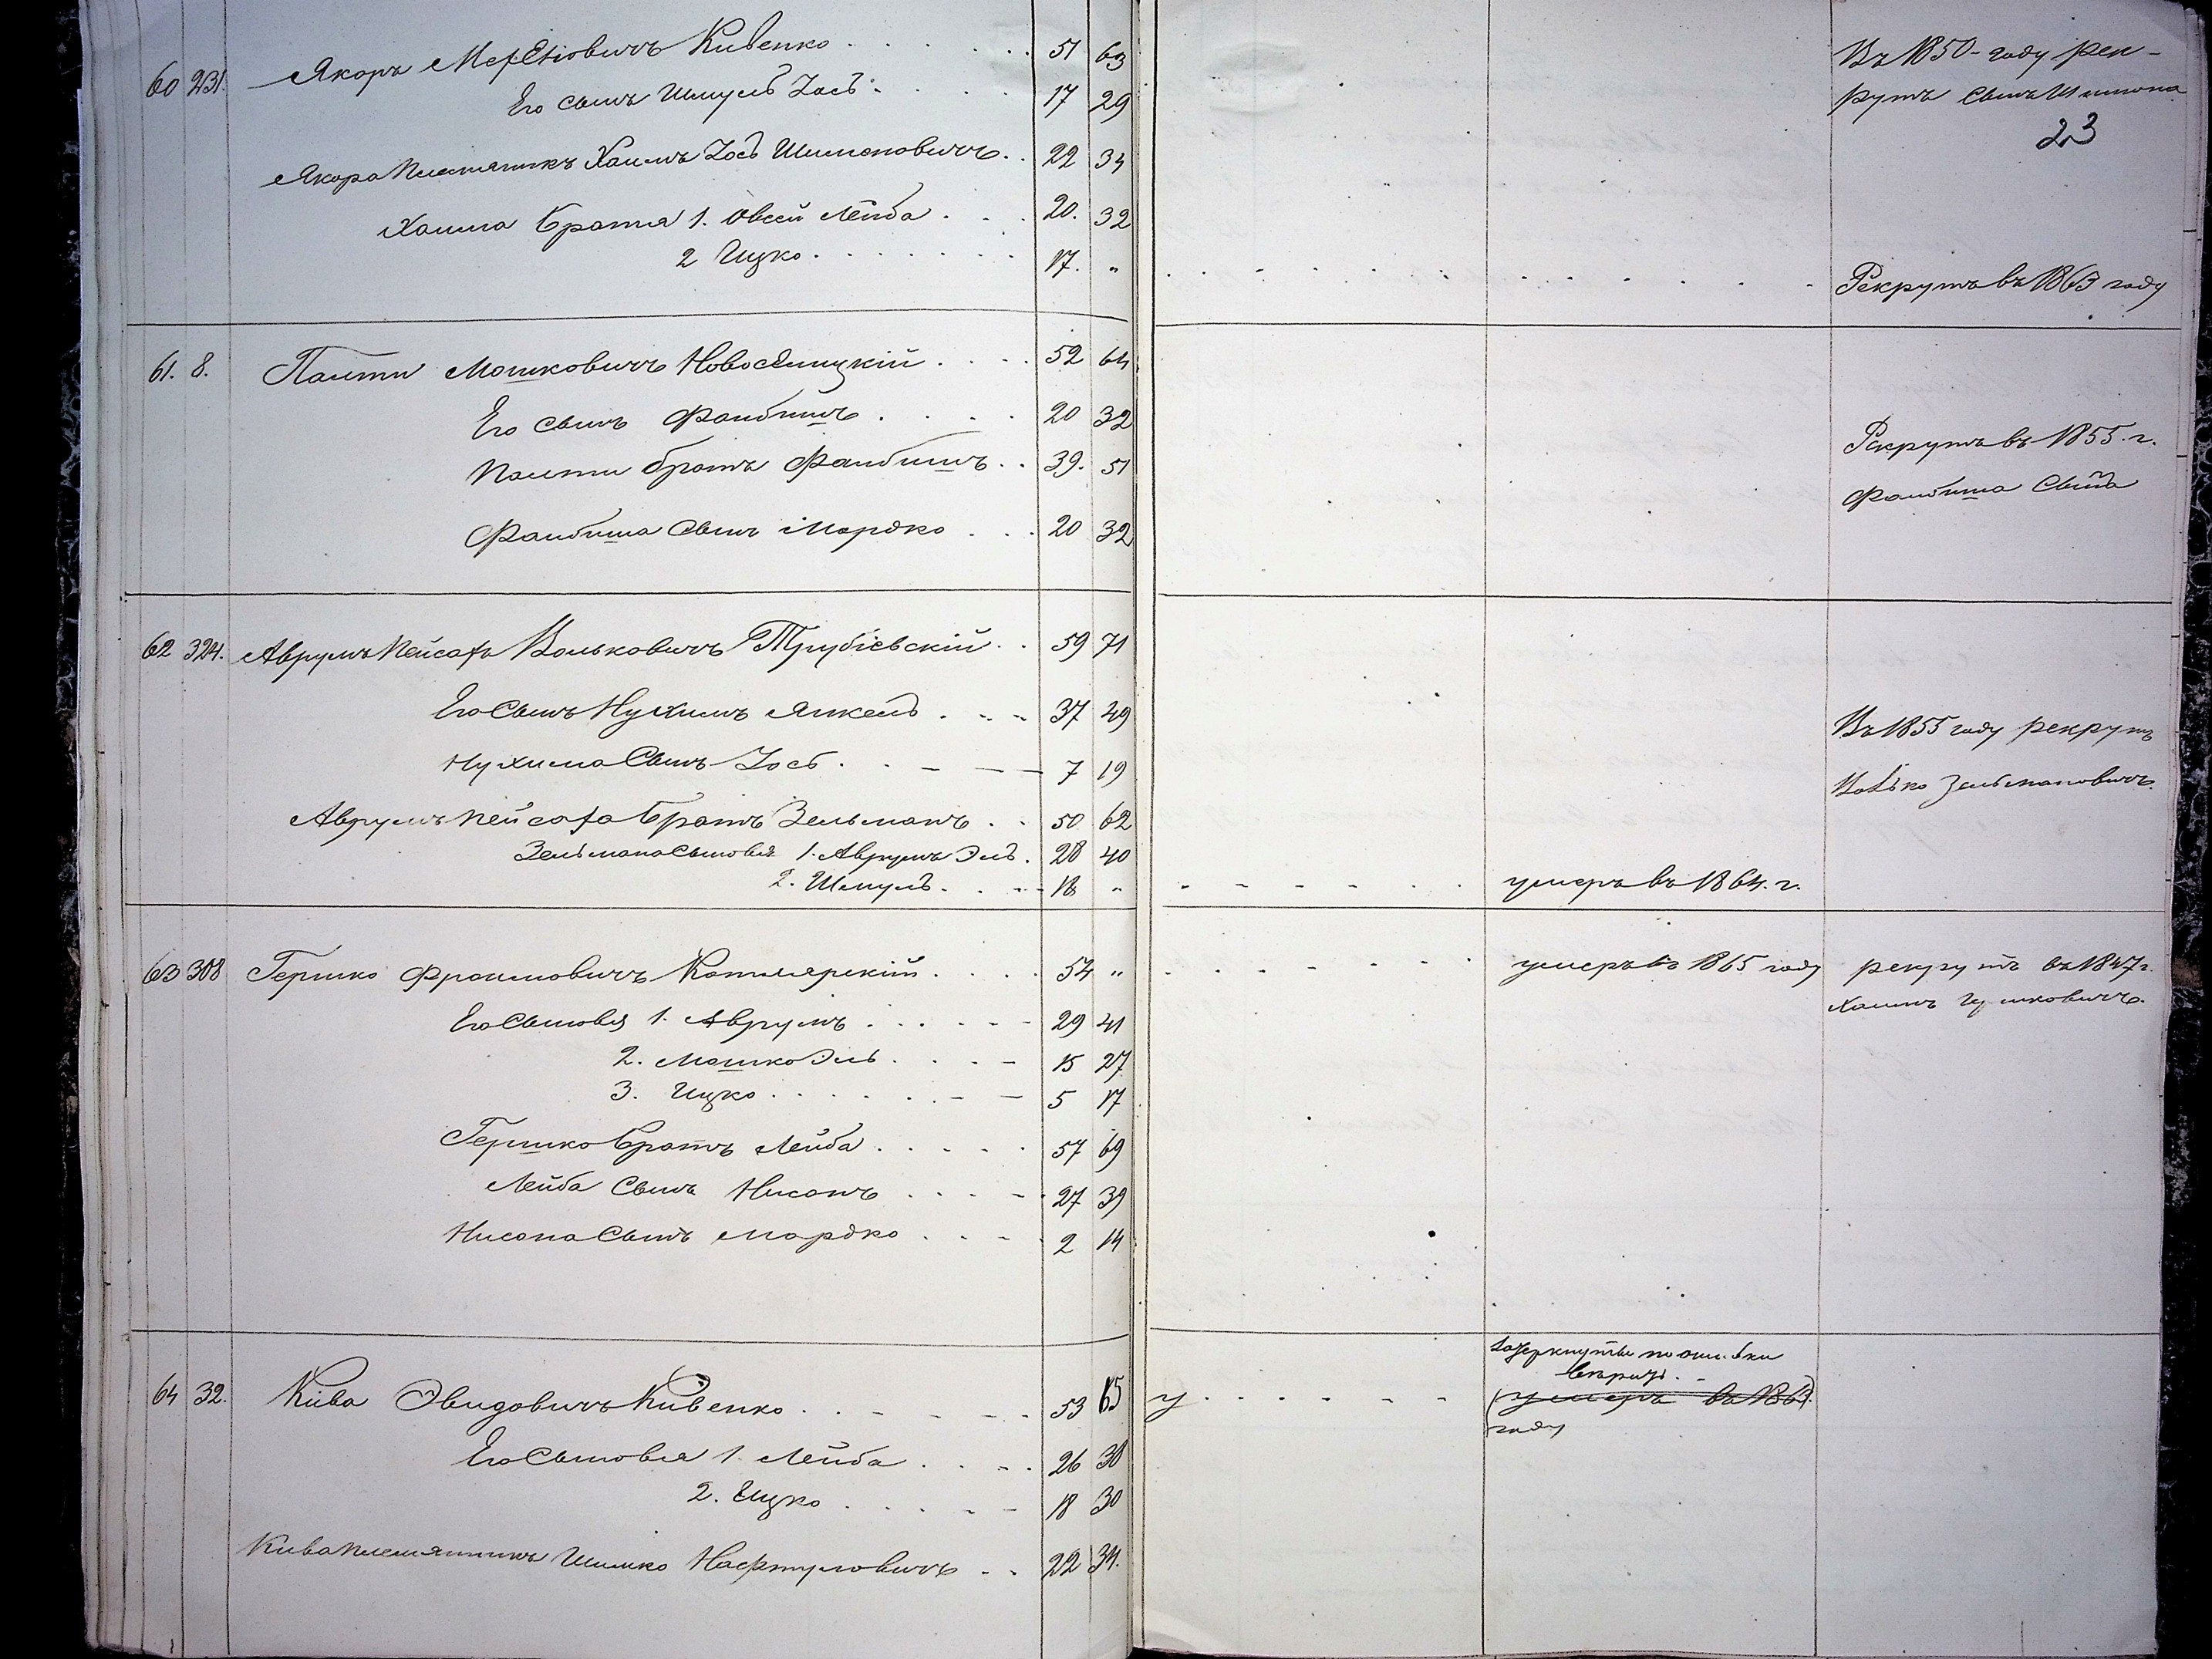 60 231. Якоръ Мер Кивенко 51 63
Его сынъ Шмуль Іось 17 29
Якора племянникъ Хаимъ Іось Шимоновичъ 22 34
Хаима братья 1. Овсей Лейба 20. 32
2 Ицко 17. "
Въ 1850 году рек-
рутъ сынъ Шимона
23
Рекрутъ въ 1863 году
61. 8. Палти Мошковичъ Новоселицкій 52 64
Его сынъ Файбишъ 20 32
Палти братъ Файбишъ 39. 51
Файбиша сынъ Мордко 20 32
Рекрутъ въ 1855 г.
Файбиша
62 324. Аврумъ Пейсахъ Вольковичъ Трубіевскій 59 71
Его Сынъ Нухимъ Янкель 37 49
Нухима Сынъ Іось 7 19
Аврумъ Пейсаха братъ Зельманъ 50 62
Зельмана сыновья 1. Аврумъ Эль 28 40
2. Шмуль 18 " умеръ въ 1864. г.
Въ 1855 году рекрутъ
Волько Зельмановичъ.
63 308 Гершко Фроимовичъ Котлярскій 54 " умеръ въ 1865 году рекрутъ въ 1847 г.
Хаимъ Гершковичъ.
Его Сыновья 1. Аврумъ 29 41
2. Мошко Эль 15 27
3. Ицко 5 17
Гершко братъ Лейба 57 69
Лейба Сынъ Нисонъ 27 39
Нисона Сынъ Мордко 2 14
64 32. Кива Эвидовичъ Кивенко 53 65 у
зачеркнуты по ошибки
(умеръ въ 1869.)
году
Его Сыновья 1. Лейба 26 38
2. Ицко 18 30
Кива племянникъ Шимко Нафтуловичъ 22 34.